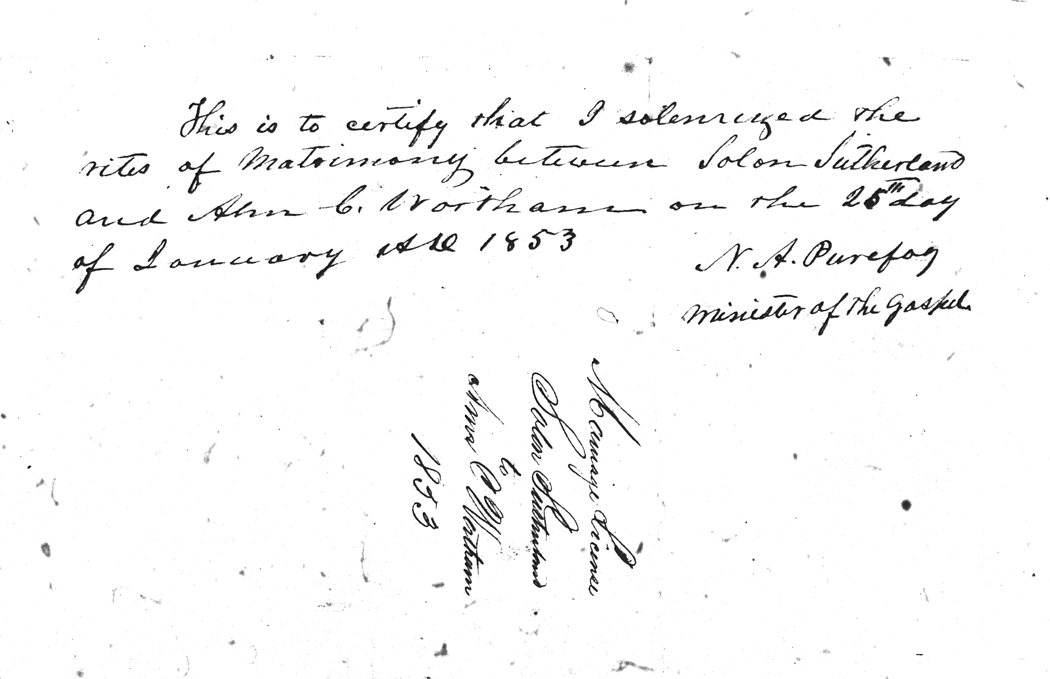 This is to certify that I solemnized the
rites of Matrimony between Solon Sutherland
and Ann C. Wortham on the 25th day
of January AD 1853
N. A. Purefoy
Minister of the Gospel
Marriage License
Solon Sutherland
to
Anna C Wortham
1853